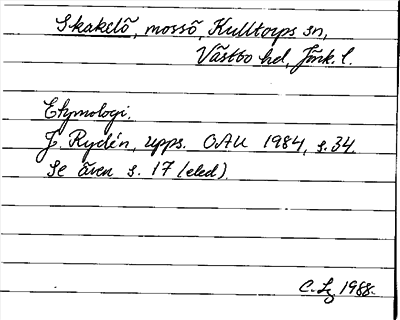 Skakelö, mossö, Kulltorps sn,
Västbo hd, Jönk. l.
Etymologi.
J. Rydén, upps. OAU 1984, s. 34.
Se även s. 17 (eled).
C. Lg 1988.